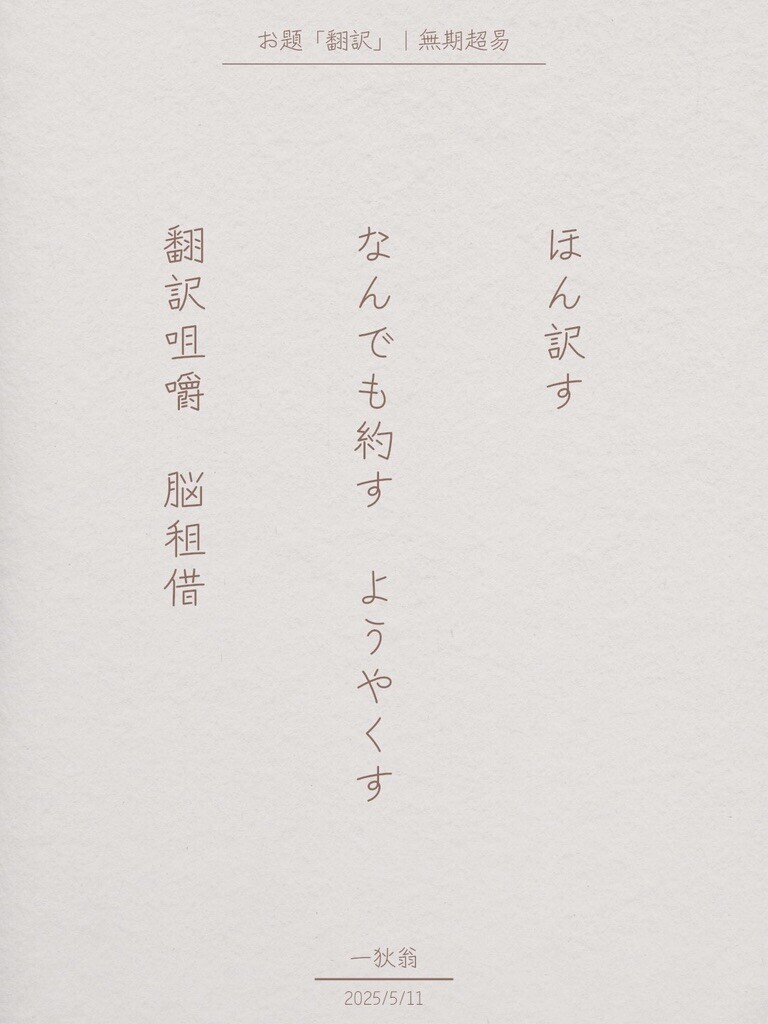 お題「翻訳」｜無期超易
ほん訳す
なんでも約す　ようやくす
翻訳咀嚼　脳租借
一狄翁
2025/5/11